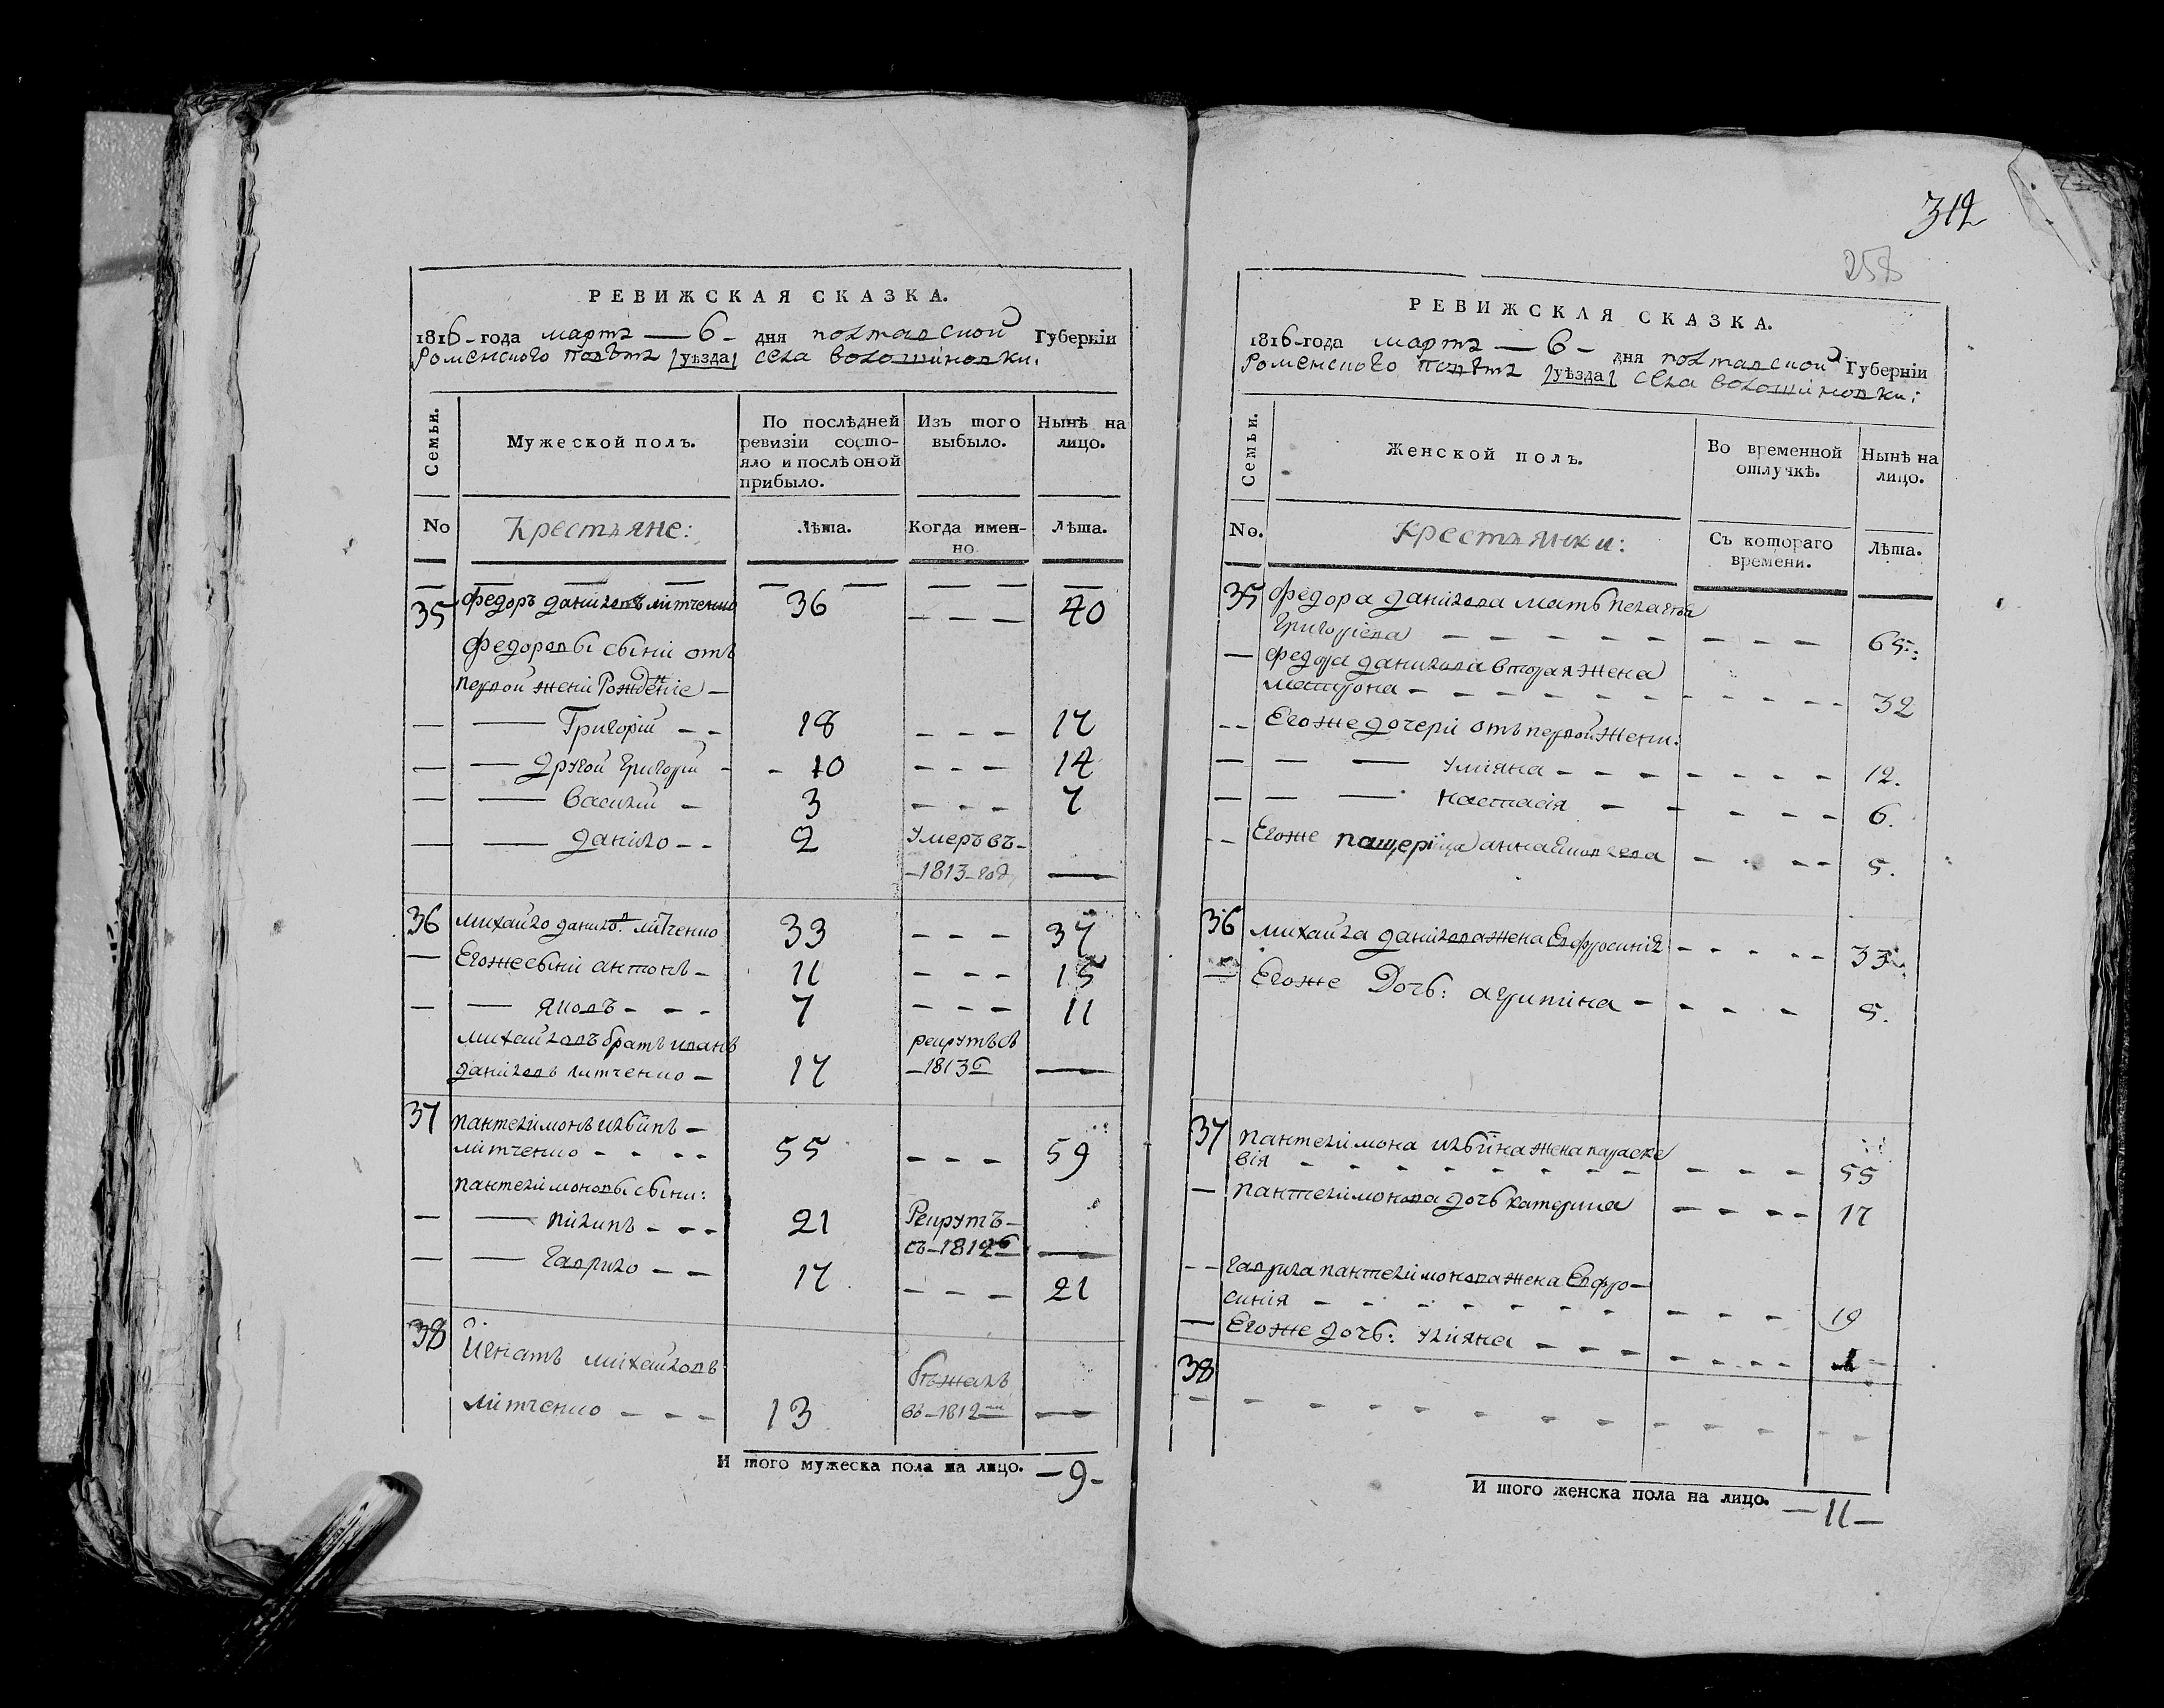 РЕВИЖСКАЯ СКАЗКА.
1816-года мартъ — 6 - дня полтавской Губерніи
Роменского повѣта /уѣзда/ села волошиновки.
Семьи.
Мужеской полъ.
По послѣдней ревизіи состо-
яло и послѣ оной прибыло.
Изъ того выбыло.
Нынѣ на лицо.
No
Крестьяне:
Лѣта.
Когда имен-
но
Лѣта.
35 федоръ данiловъ литченко 36 - - - 40
федоровы сыни отъ
первой жени Рожденiе -
— Григорій - - 18 - - - 22
— другой григорій - - 10 - - - 14
— василій - 3 - - - 7
— данiло - - 2 Умеръ въ -
-1813-год, —
36 михайло данил. литченко 33 - - - 37
Егоже сыни антонъ - 11 - - - 15
— яковъ - - - 7 - - - 11
михайловъ братъ иванъ рекрутъ съ
данiловъ литченко - 17 -1813г —
37 пантелiмонъ ильинъ -
литченко - - - - 55 - - - 59
пантелiмоновы сыни:
— пiлипъ - - - 21 Рекрутъ -
съ -1812г —
— гаврило - - 17 - - - 21
38 Игнатъ михайловъ бѣжалъ
литченко - - - 13 въ -1812мъ —
И того мужеска пола на лицо. - 9 -
312
258
РЕВИЖСКАЯ СКАЗКА.
1816-года мартъ — 6 - дня полтавской Губерніи
Роменского повѣта /уѣзда/ села волошиновки:
Семьи.
Женской полъ.
Во временной отлучкѣ.
Нынѣ на лицо.
No.
Крестьянки:
Съ котораго времени.
Лѣта.
35 федора данiлова мать пелагея
григорiева - - - - - - - - - 65.
— федора данилова вторая жена
мотрона - - - - - - - - - 32
- - Егоже дочери отъ первой жени:
— — — улiяна - - - - - - - - 12.
— — — настасiя - - - - - 6.
- - Егоже пащерiца анна - - - - 5.
36 михайла данiлова жена Евфросинiя - - - - - 33
— Егоже Дочь: агрипина - - - - - 5.
37 пантелiмона ильина жена параске
вiя - - - - - - - - - - - 55
— пантелiмонова дочь катерина - - - - 17
- - гаврила пантелiмонова жена Евфро-
синiя - - - - - - - - - - - 19
— Егоже дочь: улiяна - - - - - - - 1 -
38
- - - - - - - - - - - - -
И того женска пола на лицо. - 11 -